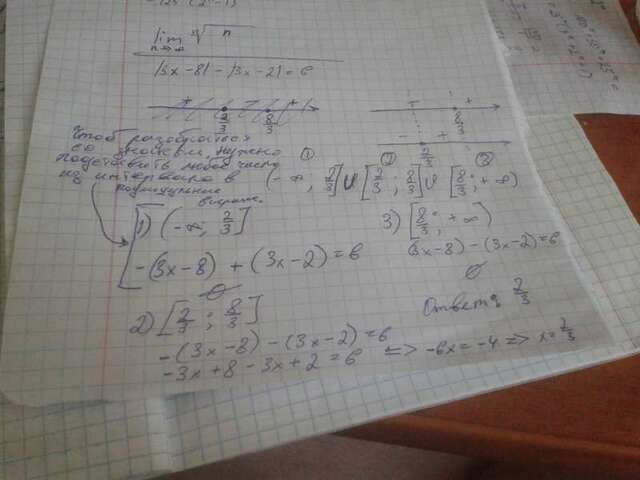 lim n→∞ ∛n
|3x-8| - |3x-2| = 6
+ - +
2/3 8/3
- +
8/3
- +
2/3
Чтоб разобраться
со знаками, нужно
подставить любое число
из интервала в
подмодульные
выраж.
① ② ③
(-∞; 2/3] ∪ [2/3; 8/3] ∪ [8/3; +∞)
1) (-∞; 2/3]
-(3x-8) + (3x-2) = 6
∅
3) [8/3; +∞)
(3x-8) - (3x-2) = 6
∅
2) [2/3; 8/3]
-(3x-8) - (3x-2) = 6
-3x+8-3x+2=6 => -6x=-4 => x=2/3
Ответ: 2/3